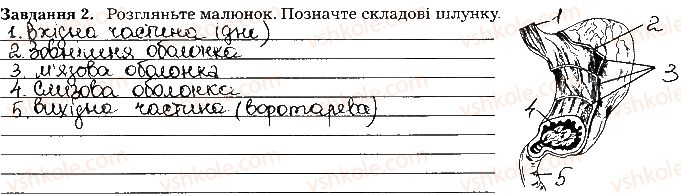 Завдання 2. Розгляньте малюнок. Позначте складові шлунку.
1. Вхідна частина (дне)
2. Зовнішня оболонка
3. м'язова оболонка
4. Слизова оболонка
5. Вихідна частина (воротарева)
1
2
3
4
5
vshkole.com